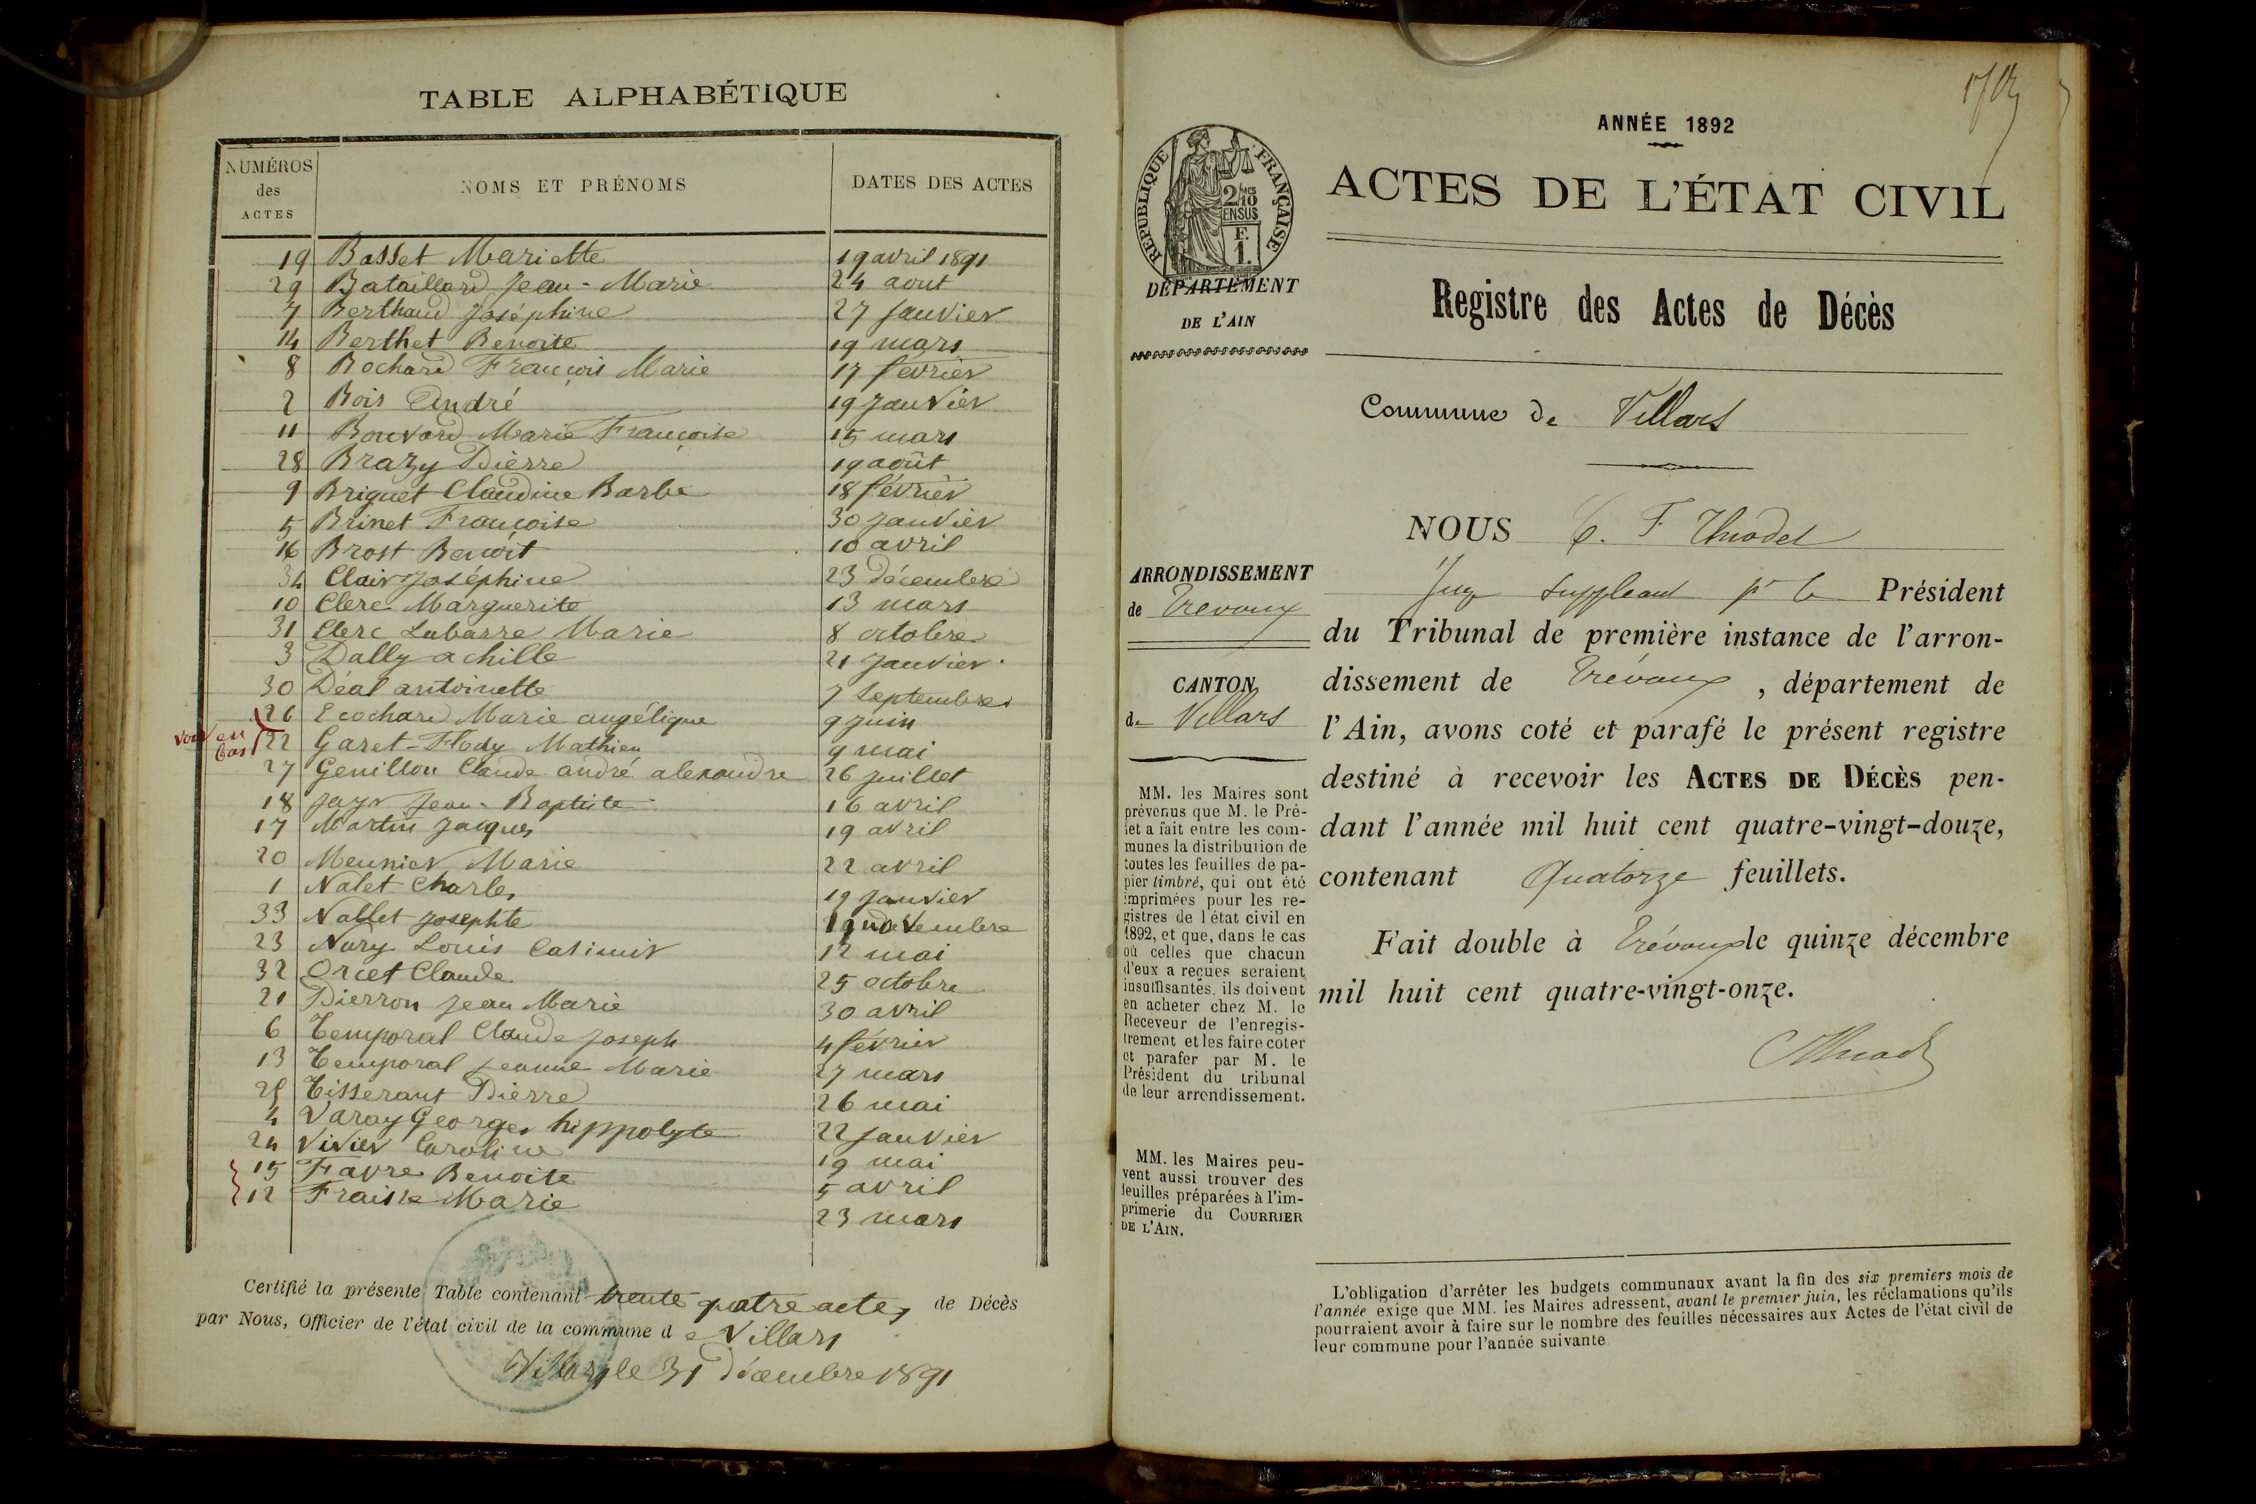 TABLE ALPHABÉTIQUE
NUMÉROS des ACTES NOMS ET PRÉNOMS DATES DES ACTES
19 Basset Mariette 19 avril 1891
29 Bataillard Jean-Marie 24 aout
7 Berthaud Joséphine 27 janvier
14 Berthet Benoite 19 mars
8 Bochard François Marie 17 février
2 Bois André 19 janvier
11 Bouvard Marie Françoise 15 mars
28 Brazy Pierre 19 août
9 Briguet Claudine Barbe 18 février
5 Brinet Françoise 30 janvier
16 Brost Benoît 10 avril
34 Clair Joséphine 23 décembre
10 Clerc Marguerite 13 mars
31 Clerc Labarre Marie 8 octobre
3 Dally achille 21 janvier
30 Déal antoinette 7 septembre
26 Ecochard Marie angélique 9 juin
voir en bas
22 Garet-Flody Mathieu 9 mai
27 Genillon Claude andré alexandre 26 juillet
18 Jayr Jean-Baptiste 16 avril
17 Martin Jacques 19 avril
20 Meunier Marie 22 avril
1 Nalet Charles 19 janvier
33 Nallet Josephte 19 novembre
23 Nury Louis Casimir 12 mai
32 Orcet Claude 25 octobre
21 Pierron Jean Marie 30 avril
6 Temporal Claude Joseph 4 février
13 Temporal Jeanne Marie 27 mars
25 Tisserant Pierre 26 mai
4 Varay Georges hippolyte 22 janvier
24 Vivier Caroline 19 mai
15 Favre Benoite 5 avril
12 Fraisse Marie 23 mars
Certifié la présente Table contenant trente quatre actes de Décès
par Nous, Officier de l'état civil de la commune d e Villars
Villars le 31 décembre 1891
ANNÉE 1892
ACTES DE L'ÉTAT CIVIL
RÉPUBLIQUE FRANÇAISE
DÉPARTEMENT
DE L'AIN
Registre des Actes de Décès
Commune de Villars
ARRONDISSEMENT
de Trévoux
CANTON
de Villars
MM. les Maires sont
prévenus que M. le Pré-
fet a fait entre les com-
munes la distribution de
toutes les feuilles de pa-
pier timbré, qui ont été
imprimées pour les re-
gistres de l'état civil en
1892, et que, dans le cas
où celles que chacun
d'eux a reçues seraient
insuffisantes, ils doivent
en acheter chez M. le
Receveur de l'enregis-
trement et les faire coter
et parafer par M. le
Président du tribunal
de leur arrondissement.
MM. les Maires peu-
vent aussi trouver des
feuilles préparées à l'im-
primerie du COURRIER
DE L'AIN.
NOUS
Juge suppléant pr le Président
du Tribunal de première instance de l'arron-
dissement de Trévoux, département de
l'Ain, avons coté et parafé le présent registre
destiné à recevoir les ACTES DE DÉCÈS pen-
dant l'année mil huit cent quatre-vingt-douze,
contenant Quatorze feuillets.
Fait double à Trévoux le quinze décembre
mil huit cent quatre-vingt-onze.
L'obligation d'arrêter les budgets communaux avant la fin des six premiers mois de
l'année exige que MM. les Maires adressent, avant le premier juin, les réclamations qu'ils
pourraient avoir à faire sur le nombre des feuilles nécessaires aux Actes de l'état civil de
leur commune pour l'année suivante